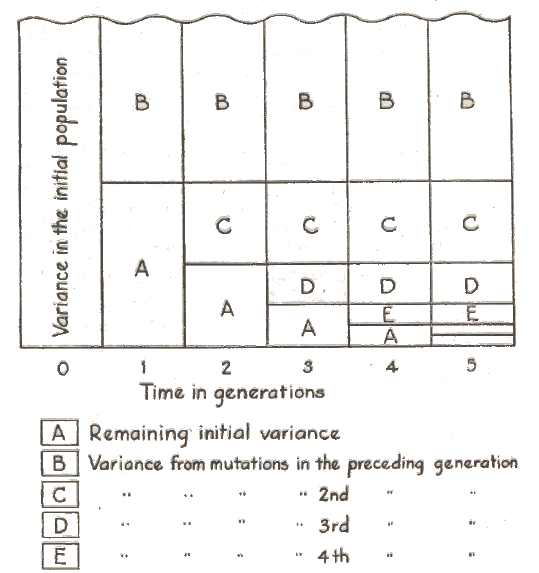 Variance in the initial population
B B B B B
C C C C
A
D D D
A
E E
A
A
0 1 2 3 4 5
Time in generations
A Remaining initial variance
B Variance from mutations in the preceding generation
C " " " " 2nd " "
D " " " " 3rd " "
E " " " " 4th " "